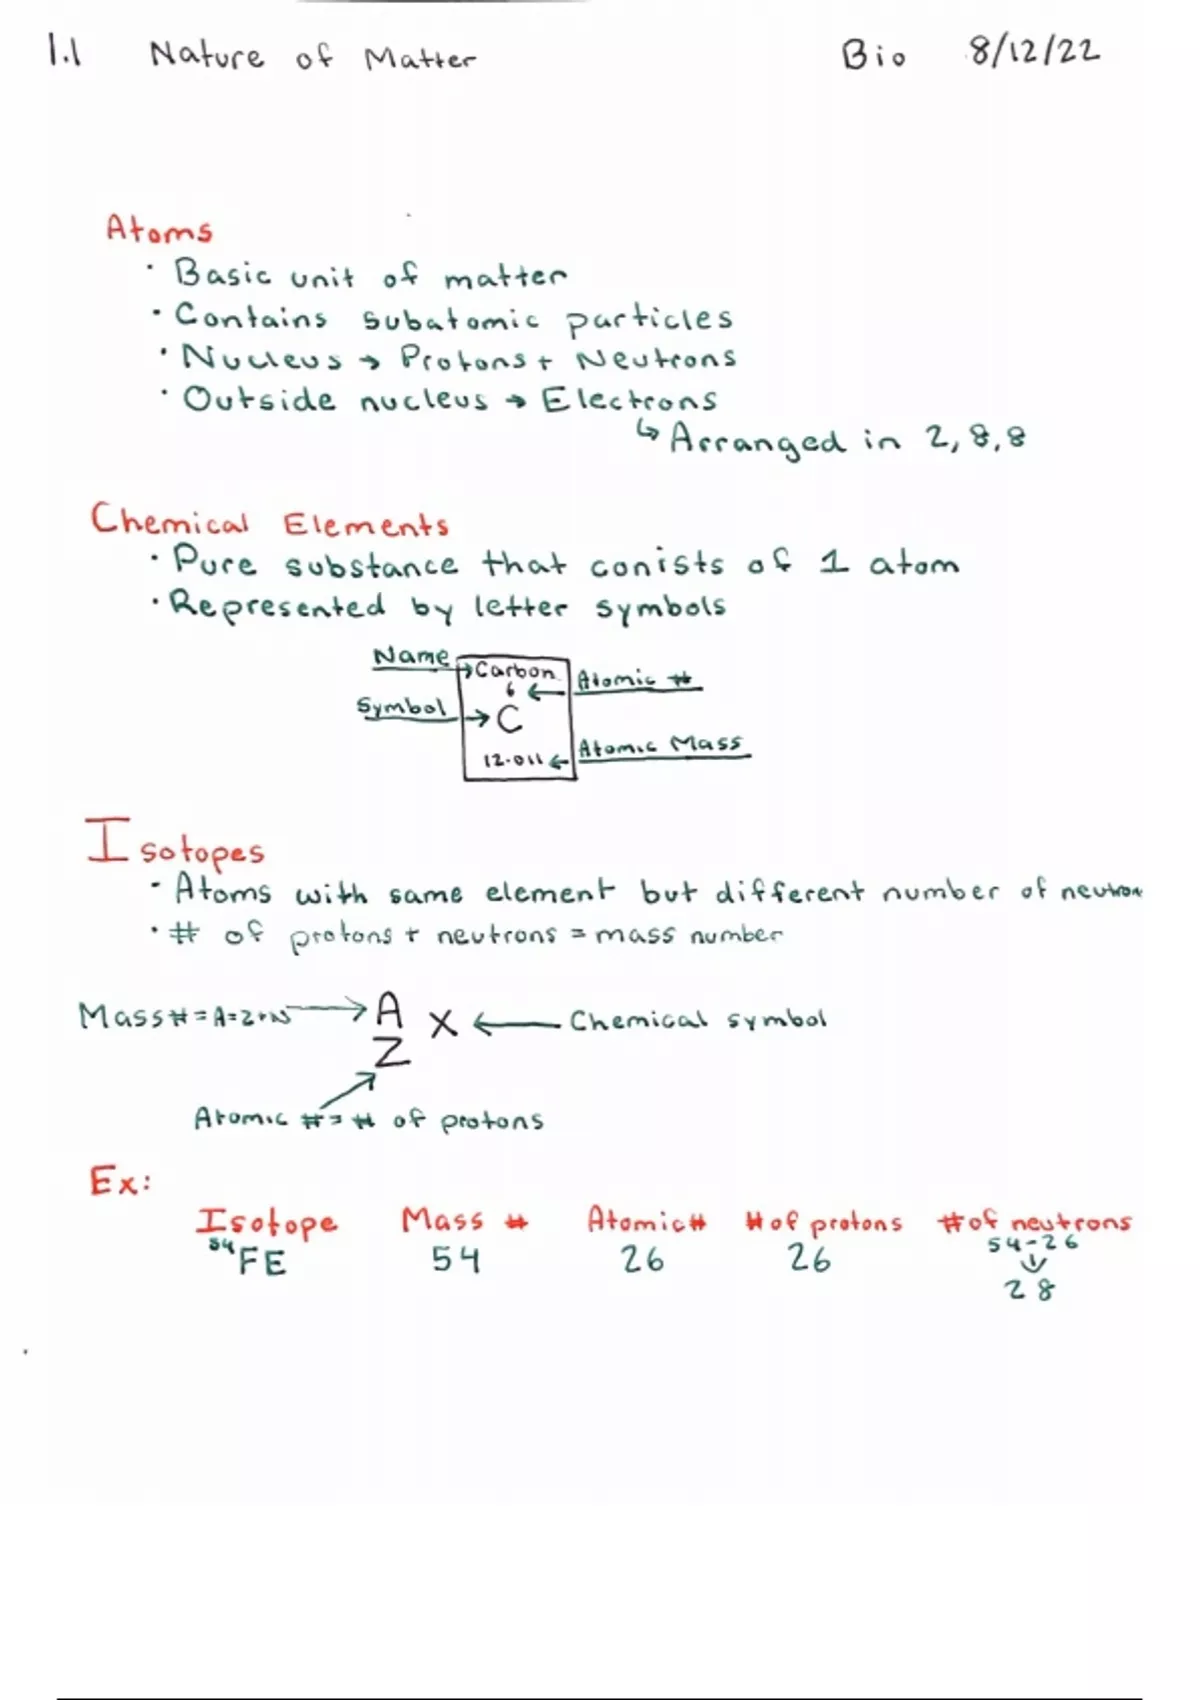 1.1 Nature of Matter Bio 8/12/22
Atoms
· Basic unit of matter
· Contains subatomic particles
· Nucleus → Protons + Neutrons
· Outside nucleus → Electrons
↳ Arranged in 2, 8, 8
Chemical Elements
· Pure substance that conists of 1 atom
· Represented by letter symbols
Name → Carbon
6 ← Atomic #
Symbol → C
12.011 ← Atomic Mass
Isotopes
· Atoms with same element but different number of neutron
· # of protons + neutrons = mass number
Mass # = A = Z + N → A X ← Chemical symbol
Z
Atomic # = # of protons
Ex:
Isotope Mass # Atomic # # of protons # of neutrons
54-26
⁵⁴FE 54 26 26
↓
28